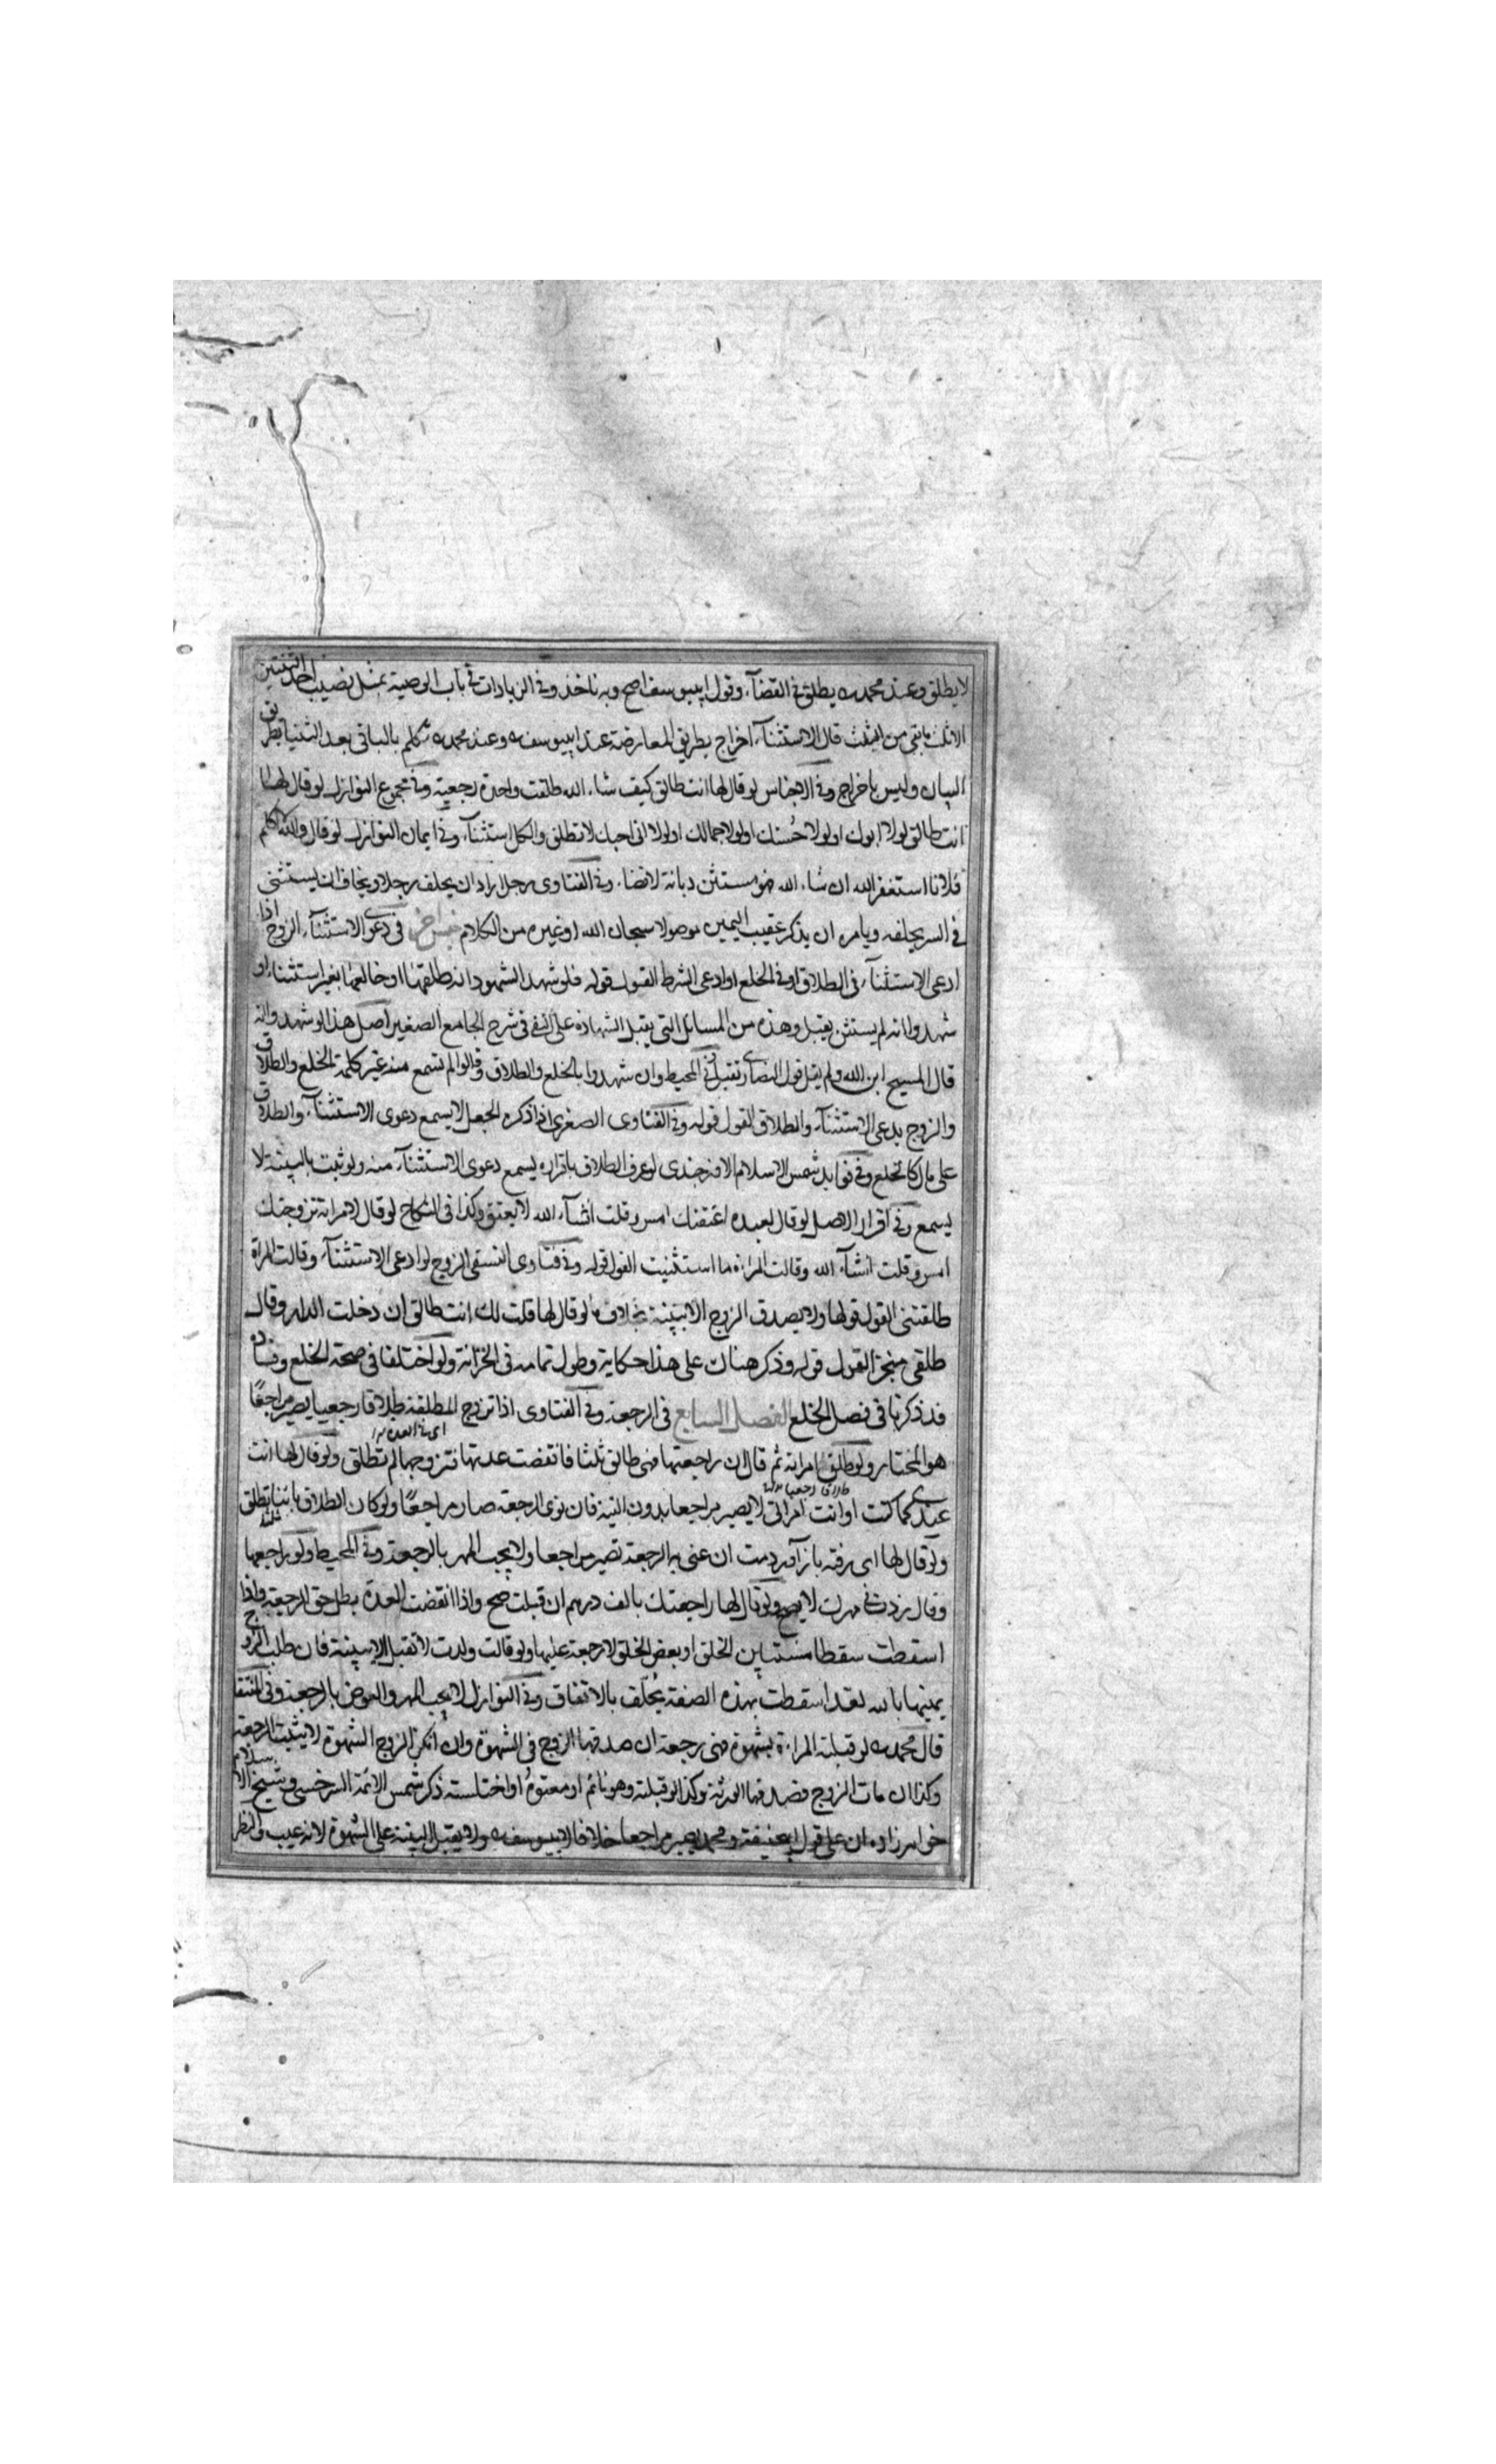 لا يطلق وعند محمد ره يطلق في القضآء وقول ابييوسف اصح وبه ناخذ وفي الزيادات في باب الوصية بمثل نصيب احد البنتين
الا ثلث ما بقي من الثلث قال الاستثنآء اخراج بطريق المعارضة عند ابييوسف ره وعند محمد ره تكلم بالباقي بعد الثنيا بطريق
البيان وليس باخراج وفي الاجناس لو قال لها انت طالق كيف شاء الله طلقت واحدة رجعية وفي مجموع النوازل لو قال لها
انت طالق لولا ابوك او لولا حُسنك او لولا جمالك او لولا اني احبك لا تطلق والكل استثنآء وفي ايمان النوازل لو قال والله لا اكلم
فلانا استغفر الله ان شاء الله هو مستثن ديانة لا قضاء وفي الفتاوى رجل اراد ان يحلف رجلا ويخاف ان يستثني
في السر يحلفه ويامره ان يذكر عقيب اليمين موصولا سبحان الله او غيره من الكلام جنس اخر في دعوى الاستثنآء الزوج اذا
ادعى الاستثنآء في الطلاق او في الخلع او ادعى الشرط القول قوله فلو شهد الشهود انه طلقها او خالعها بغير استثناء او
شهدوا انه لم يستثن يقبل وهذه من المسائل التي يقبل الشهادة على النفي في شرح الجامع الصغير اصل هذا لو شهدوا انه
قال المسيح ابن الله ولم يقل قول النصارى تقبل وفي المحيط وان شهدوا بالخلع والطلاق وقالوا لم نسمع منه غير كلمة الخلع والطلاق
والزوج يدعي الاستثنآء والطلاق القول قوله وفي الفتاوى الصغرى اذا ذكره الجعل لا يسمع دعوى الاستثنآء والطلاق
على مال كالخلع وفي فوايد شمس الاسلام الاوزجندى لو عرف الطلاق باقراره يسمع دعوى الاستثنآء منه ولو ثبت بالبينة لا
يسمع وفي اقرار الاصل لو قال لعبده اعتقتك امس وقلت انشآء الله لا يعتق وكذا في النكاح لو قال لامراته تزوجتك
امس وقلت انشآء الله وقالت المراة ما استثنيت القول قوله وفي فتاوى النسفي الزوج لو ادعى الاستثنآء وقالت المراة
طلقتني القول قولها ولا يصدق الزوج الا ببينة بخلاف ما لو قال لها قلت لك انت طالق ان دخلت الدار وقالت
طلقني منجزا القول قوله وذكر هناك على هذا حكاية وطول تمامه في الخزانة ولو اختلفا في صحة الخلع وفساده
فذ ذكرنا في فصل الخلع الفصل السابع في الرجعة وفي الفتاوى اذا تزوج المطلقة طلاقا رجعيا يصير مراجعًا
هو المختار ولو طلق امراته ثم قال ان راجعتها فهي طالق ثلثا فانقضت عدتها فتزوجها لم تطلق ولو قال لها انت
عندي كما كنت او انت امراتي لا يصير مراجعا بدون النية فان نوى الرجعة صار مراجعًا ولو كان الطلاق باينا يطلق
ولو قال لها اى رفته باز آوردمت ان عنى به الرجعة تصير مراجعا ولا يجب المهر بالرجعة وفي المحيط ولو راجعها
وقال زدت في مهرك لا يصح ولو قال لها راجعتك بالف درهم ان قبلت صح واذا انقضت العدة بطل حق الرجعة واذا
اسقطت سقطا مستبين الخلق او بعض الخلق لا رجعة عليها ولو قالت ولدت لا تقبل الا ببينة فان طلب الزوج
يمينها بالله لقد اسقطت بهذه الصفة يُحلّف بالاتفاق وفي النوازل لا يجب المهر والعوض بالرجعة وفي المنتقى
قال محمد ره لو قبلته المراءة بشهوة فهي رجعة ان صدقها الزوج في الشهوة وان انكر الزوج الشهوة لا يثبت الرجعة
وكذا ان مات الزوج فصدقها الورثة وكذا لو قبلته وهو نائم او معتوه او اختلسته ذكر شمس الائمة السرخسي وشيخ الاسلام
خواهرزاده ان على قول ابيحنيفة ومحمد يصير مراجعا خلافا لابييوسف ره ولا يقبل البينة على الشهوة لانه غيب والنظر